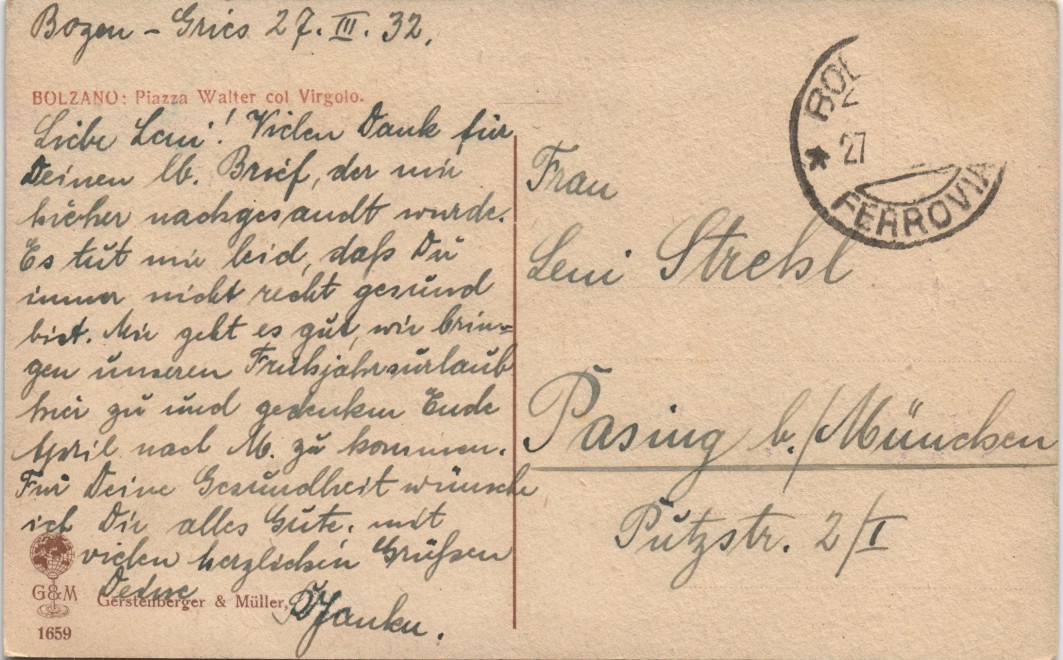 Bozen - Gries 27. III. 32.
BOLZANO: Piazza Walter col Virgolo.
Liebe Leni! Vielen Dank für
Deinen lb. Brief, der mir
hieher nachgesandt wurde.
Es tut mir leid, daß Du
immer nicht recht gesund
bist. Mir geht es gut, wir brin=
gen unseren Frühjahrsurlaub
hier zu und gedenken Ende
April nach M. zu kommen.
Für Deine Gesundheit wünsche
ich Dir alles Gute. mit
vielen herzlichen Grüßen
Deine
G&M
Gerstenberger & Müller,
1659
BOL
27
FERROVIA
Frau
Leni Strehl
Pasing b./München
Putzstr. 2/I